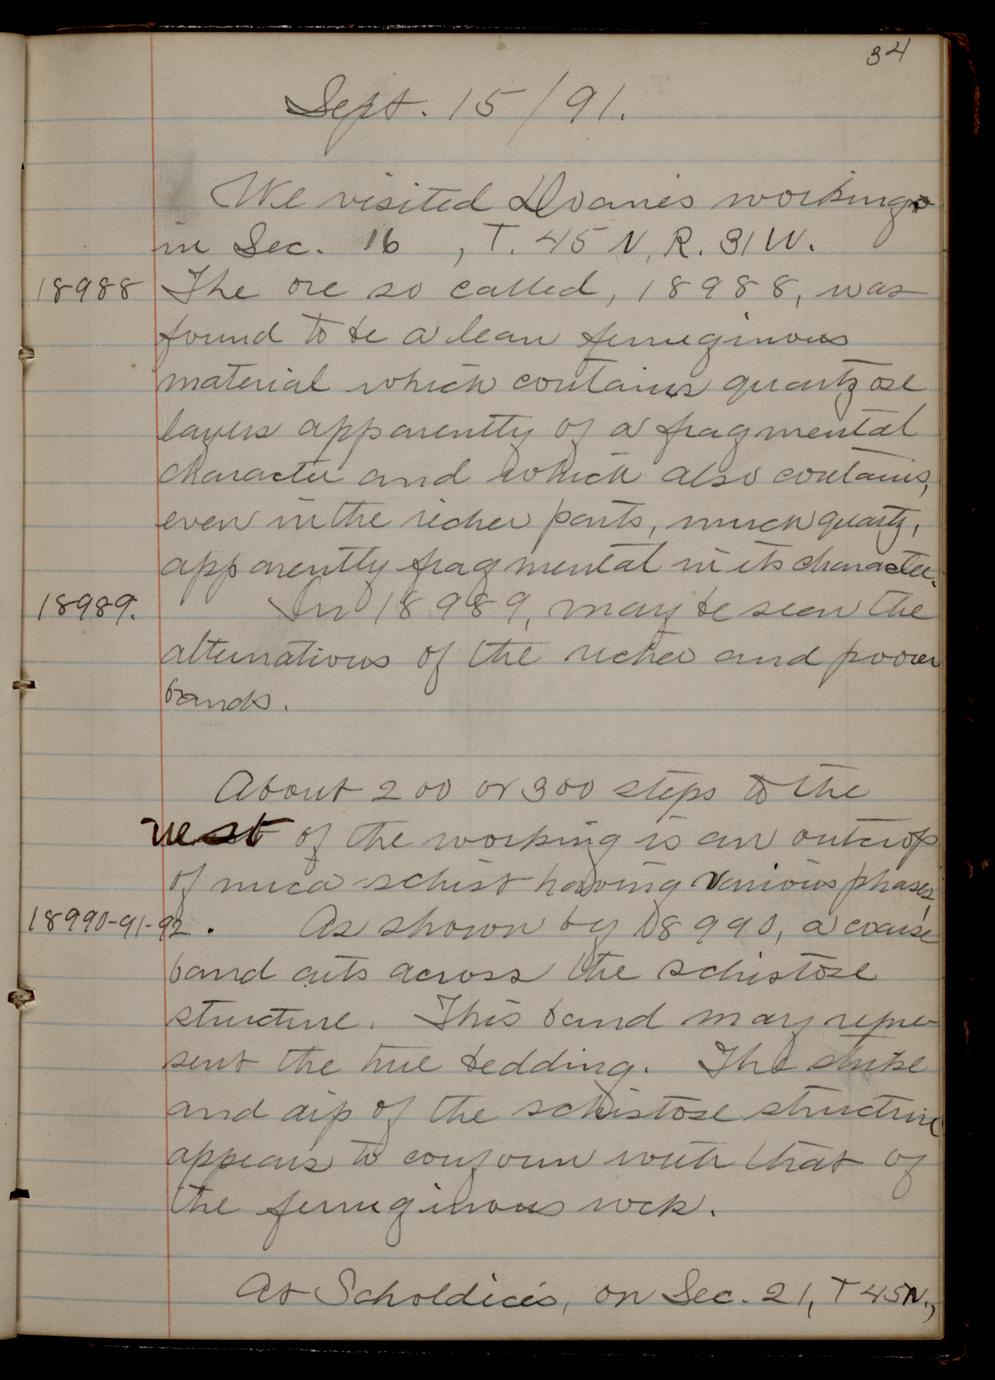 34
Sept. 15/91.
We visited Doane's workings
in Sec. 16 , T. 45 N, R. 31 W.
18988 The ore so called, 18988, was
found to be a lean ferruginous
material which contains quartzose
layers apparently of a fragmental
character and which also contains,
even in the richer parts, much quartz,
apparently fragmental in its character.
18989. In 18989, may be seen the
alternations of the richer and poorer
bands.
About 200 or 300 steps to the
west of the working is an outcrop
of mica-schist having various phases,
18990-91-92. As shown by 18990, a coarse
band cuts across the schistose
structure. This band may repre-
sent the true bedding. The strike
and dip of the schistose structure
appears to conform with that of
the ferruginous rock.
At on Sec. 21, T 45 N.,